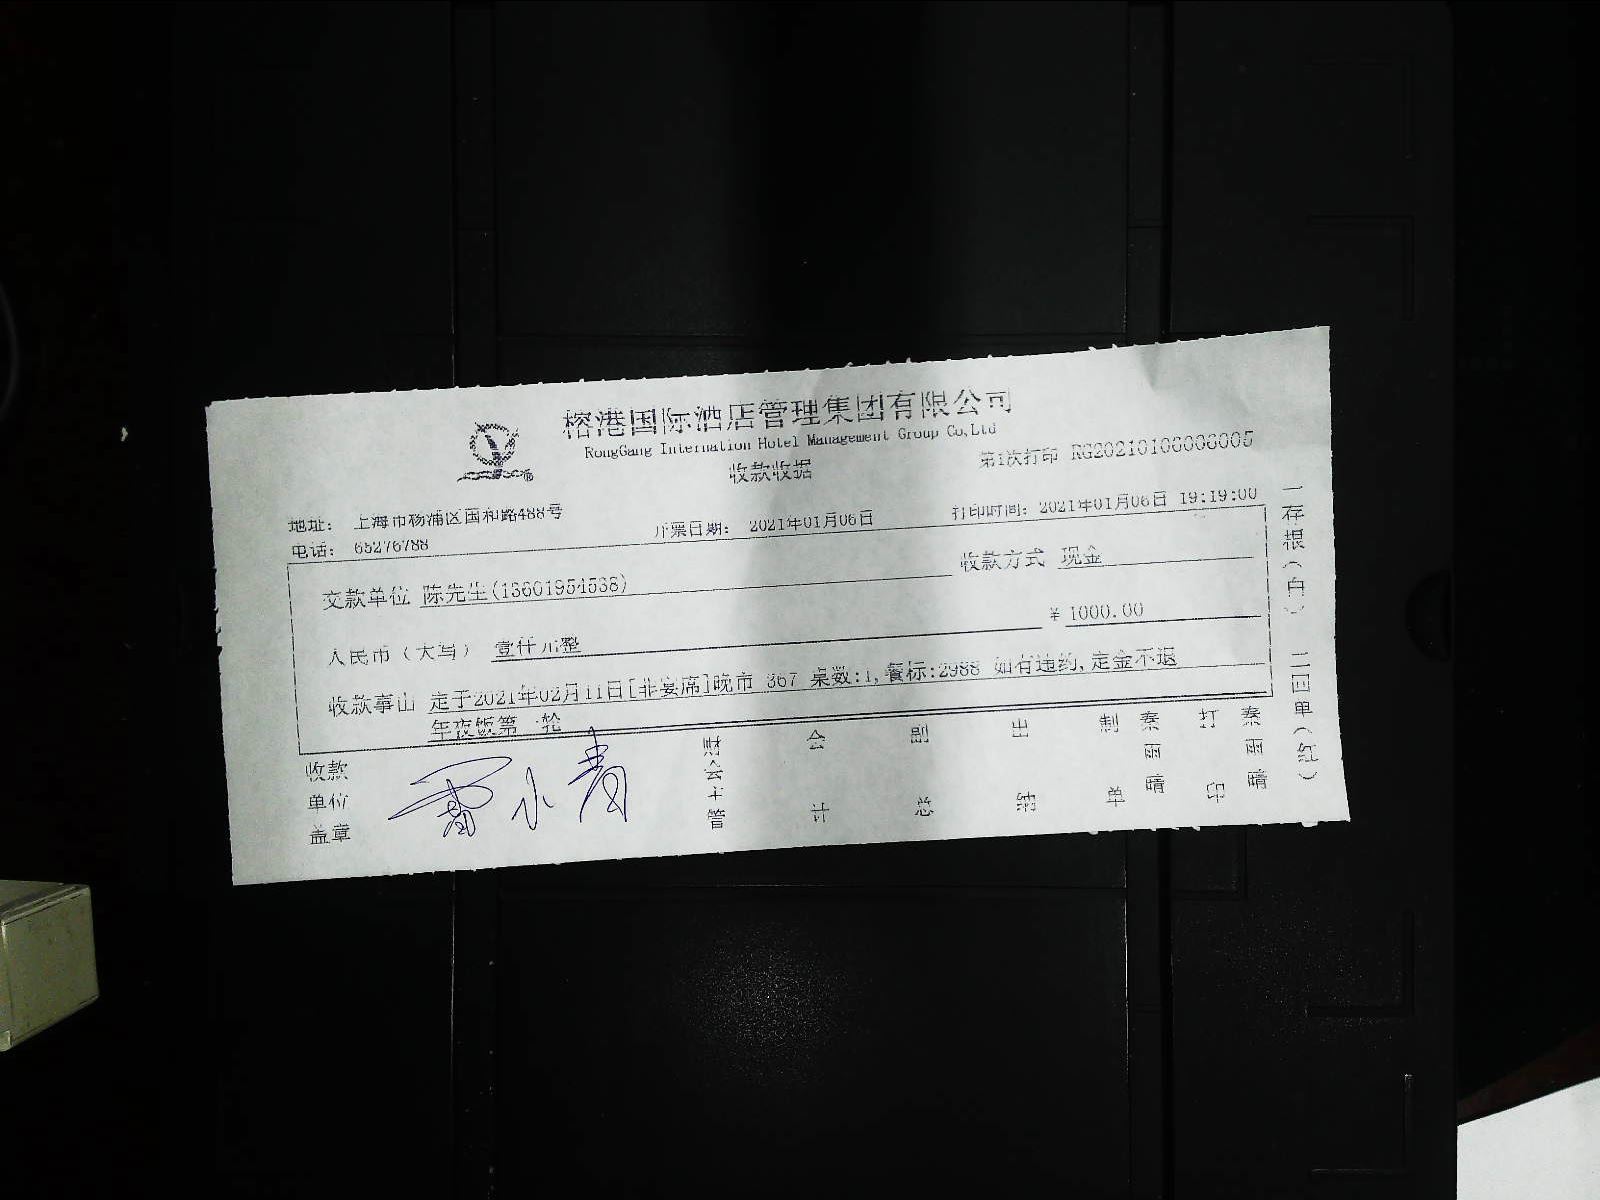 榕港国际酒店管理集团有限公司
RongGang Internation Hotel Management Group Co,Ltd
收款收据
第1次打印 RG20210106006005
地址： 上海市杨浦区国和路488号
电话： 65276788
开票日期： 2021年01月06日
打印时间： 2021年01月06日 19:19:00
交款单位 陈先生(13601954538)
收款方式 现金
人民币（大写） 壹仟元整
¥ 1000.00
收款事由 定于2021年02月11日[非宴席]晚市 367 桌数:1,餐标:2988 如有违约,定金不退
年夜饭第 轮
收款单位盖章
小青
财会主管
会计
副总
出纳
制单
秦雨晴
打印
秦雨晴
一存根（白） 二回单（红）